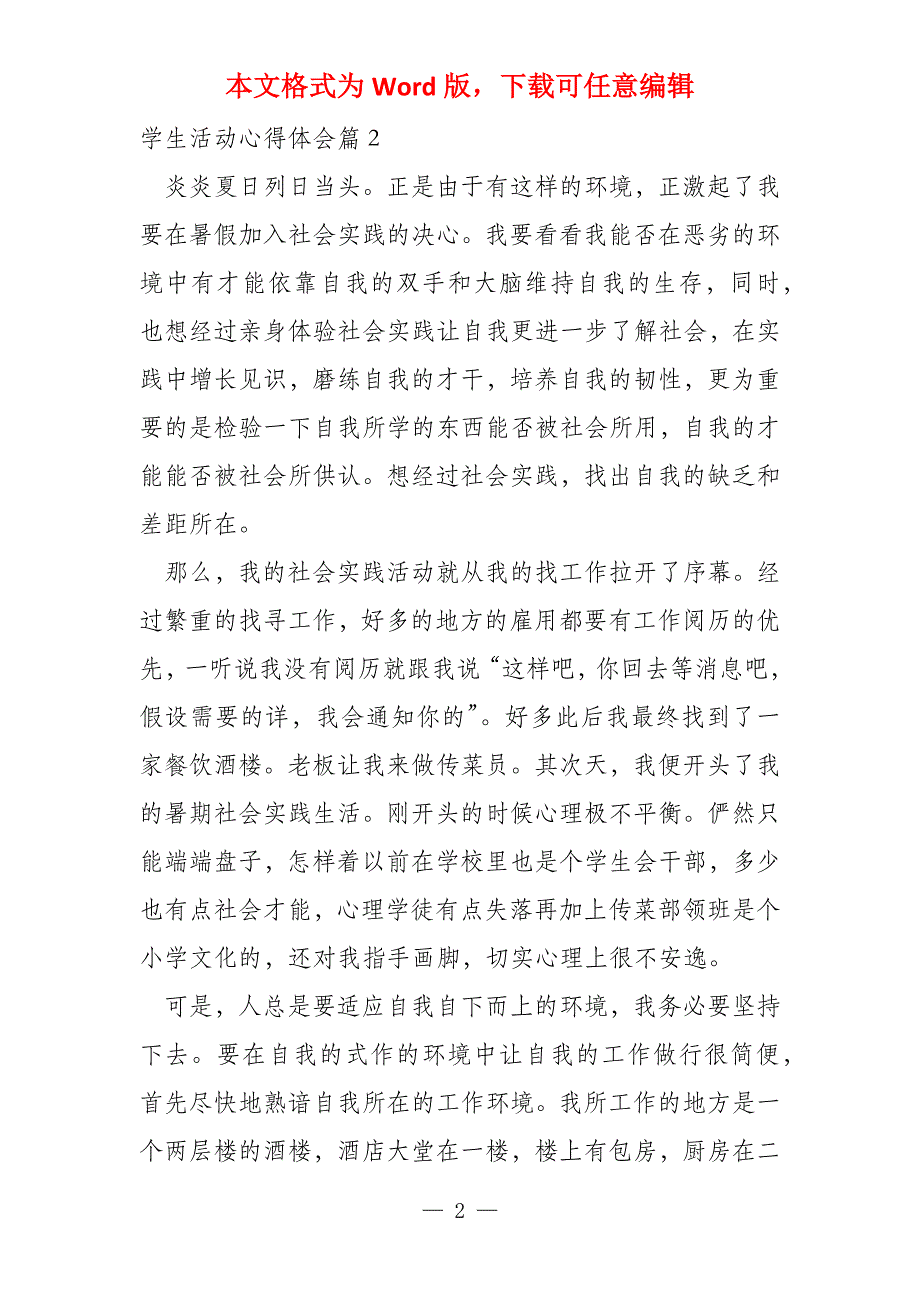 本文格式为 Word 版，下载可任意编辑
学生活动心得体会篇 2
炎炎夏日列日当头。正是由于有这样的环境，正激起了我
要在暑假加入社会实践的决心。我要看看我能否在恶劣的环
境中有才能依靠自我的双手和大脑维持自我的生存，同时，
也想经过亲身体验社会实践让自我更进一步了解社会，在实
践中增长见识，磨练自我的才干，培养自我的韧性，更为重
要的是检验一下自我所学的东西能否被社会所用，自我的才
能能否被社会所供认。想经过社会实践，找出自我的缺乏和
差距所在。
那么，我的社会实践活动就从我的找工作拉开了序幕。经
过繁重的找寻工作，好多的地方的雇用都要有工作阅历的优
先，一听说我没有阅历就跟我说“这样吧，你回去等消息吧，
假设需要的详，我会通知你的”。好多此后我最终找到了一
家餐饮酒楼。老板让我来做传菜员。其次天，我便开头了我
的暑期社会实践生活。刚开头的时候心理极不平衡。俨然只
能端端盘子，怎样着以前在学校里也是个学生会干部，多少
也有点社会才能，心理学徒有点失落再加上传菜部领班是个
小学文化的，还对我指手画脚，切实心理上很不安逸。
可是，人总是要适应自我自下而上的环境，我务必要坚持
下去。要在自我的式作的环境中让自我的工作做行很简便，
首先尽快地熟谙自我所在的工作环境。我所工作的地方是一
个两层楼的酒楼，酒店大堂在一楼，楼上有包房，厨房在二
— 2 —